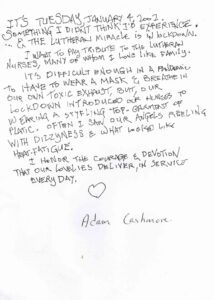 IT'S TUESDAY, JANUARY 4, 2021
SOMETHING I DIDN'T THINK I'D EXPERIENCE.
... & THE LUTHERAN MIRACLE IS LOCKDOWN.
I WANT TO PAY TRIBUTE TO THE LUTHERAN
NURSES, MANY OF WHOM I LOVE LIKE FAMILY.
IT'S DIFFICULT ENOUGH IN A PANDEMIC
TO HAVE TO WEAR A MASK & BREATHE IN
OUR OWN TOXIC EXHAUST, BUT, OUR
LOCKDOWN INTRODUCED OUR NURSES TO
WEARING A STYFLING TOP-GARMENT OF
PLATIC. OFTEN I SAW OUR ANGELS REELING
WITH DIZZYNESS & WHAT LOOKED LIKE
HEAT-FATIGUE.
I HONOR THE COURAGE & DEVOTION
THAT OUR LOVELIES DELIVER, IN SERVICE
EVERY DAY.
Adam Cashmore.